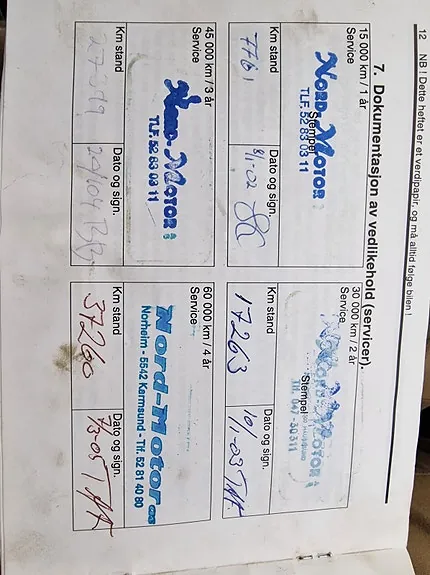 12 NB ! Dette heftet er et verdipapir, og må alltid følge bilen !
7. Dokumentasjon av vedlikehold (servicer).
15 000 km / 1 år
Service
Stempel
NORD-MOTOR
TLF. 52 83 03 11
Km stand
7761
Dato og sign.
8/1-02
30 000 km / 2 år
Service
NORD-MOTOR
Stempel
Tlf. 047-30311
Km stand
17263
Dato og sign.
10/1-03
45 000 km / 3 år
Service
NORD-MOTOR
TLF. 52 83 03 11
Km stand
Dato og sign.
20/1 04
60 000 km / 4 år
Service
Nord-Motor as
Norheim - 5542 Karmsund - Tlf. 52 81 40 80
Km stand
37260
Dato og sign.
7/3-05